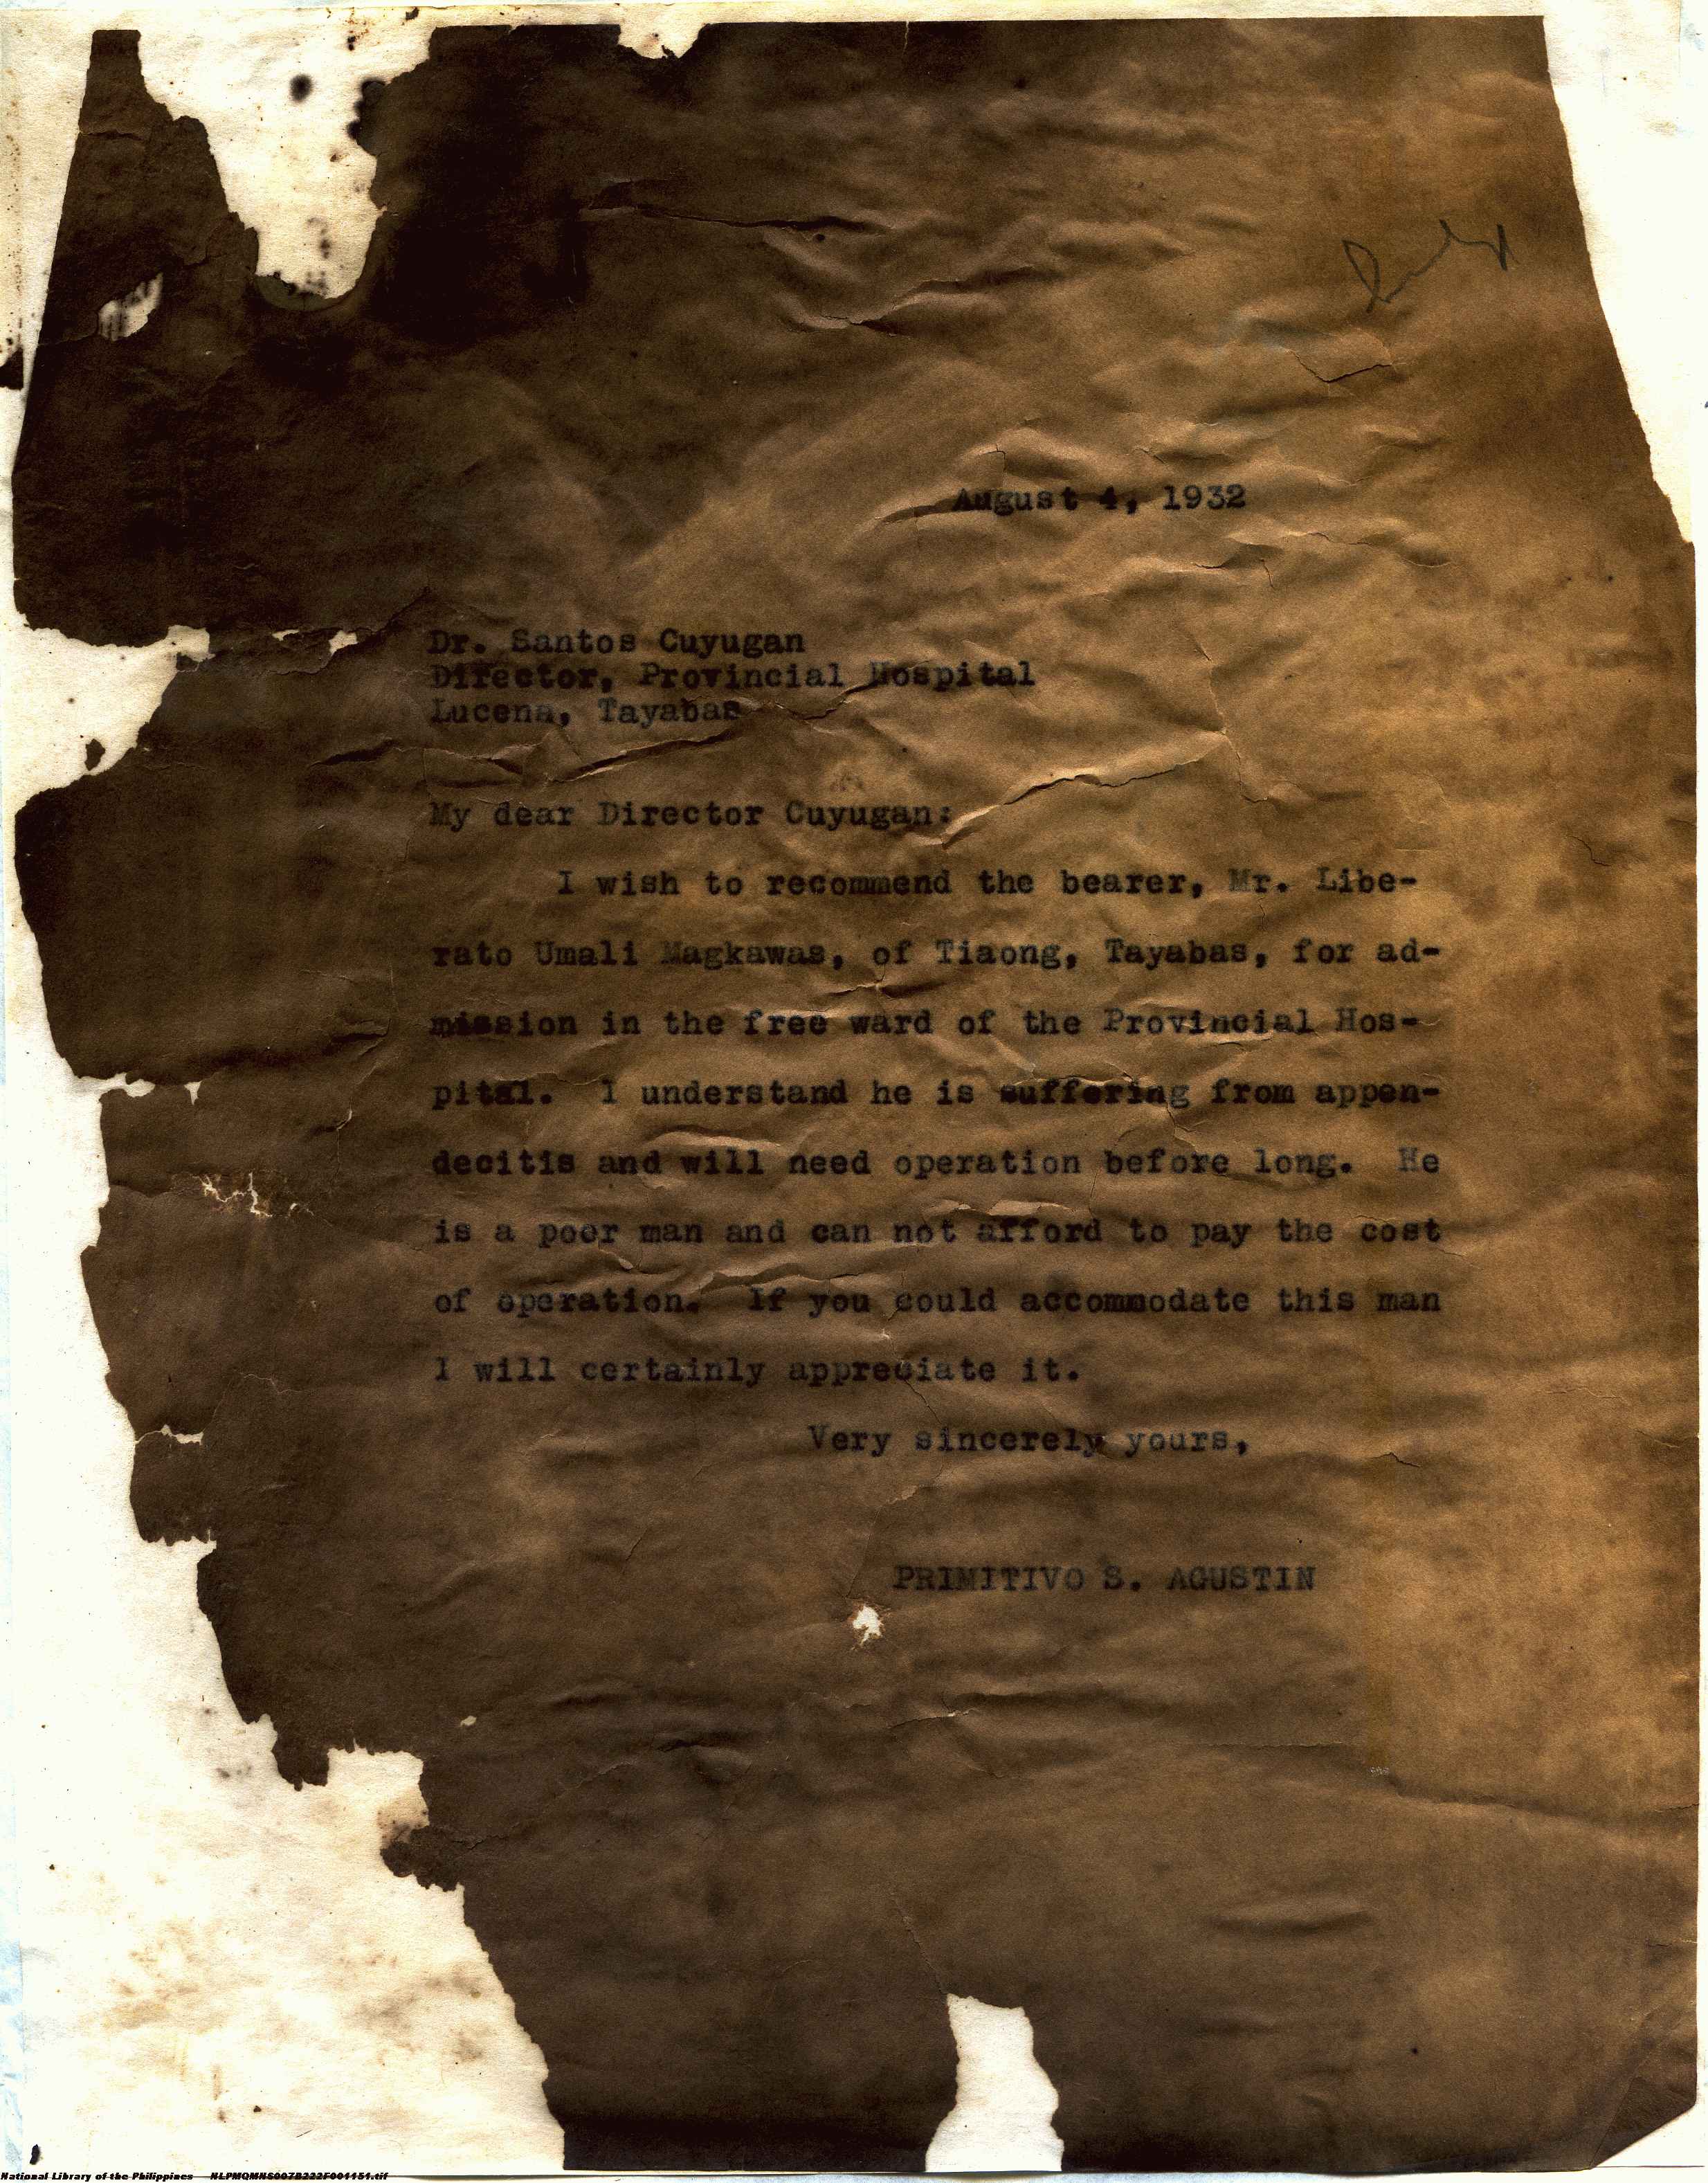 August 4, 1932
Dr. Santos Cuyugan
Director, Provincial Hospital
Lucena, Tayabas
My dear Director Cuyugan:
I wish to recommend the bearer, Mr. Libe-
rato Umali Magkawas, of Tiaong, Tayabas, for ad-
mission in the free ward of the Provincial Hos-
pital. I understand he is suffering from appen-
decitis and will need operation before long. He
is a poor man and can not afford to pay the cost
of operation. If you could accommodate this man
I will certainly appreciate it.
Very sincerely yours,
PRIMITIVO S. AGUSTIN
National Library of the Philippines NLPMQMNS007B222F001151.tif